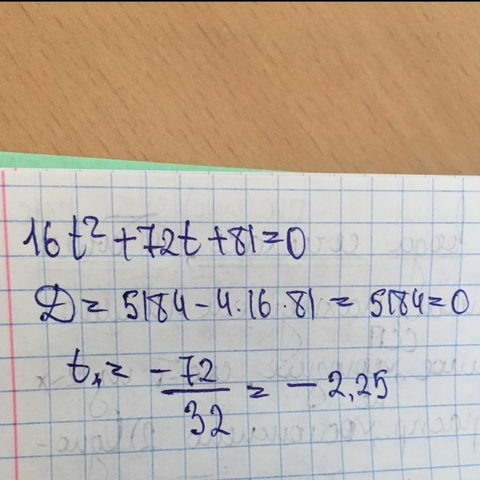 16t² + 72t + 81 = 0
D = 5184 - 4·16·81 = 5184 = 0
t₁ = -72/32 = -2,25